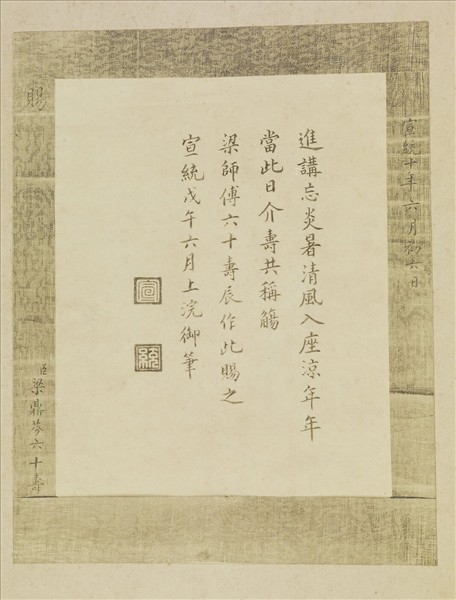 宣統十年六月初六日
進講忘炎暑清風入座涼年年
當此日介壽共稱觴
梁師傅六十壽辰作此賜之
宣統戊午六月上浣御筆
宣
統
賜
臣梁鼎芬六十壽